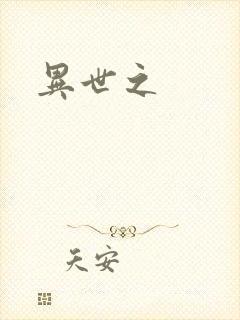 異世之
天安